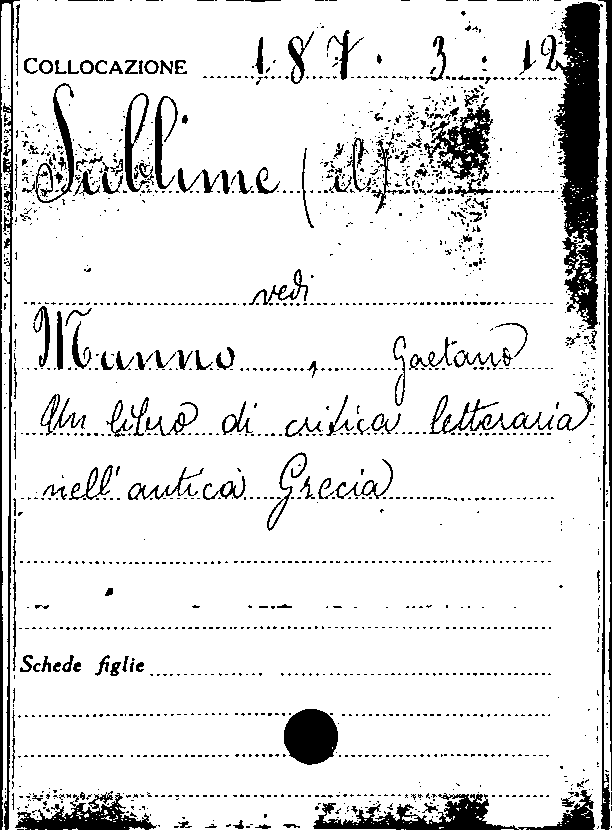 COLLOCAZIONE 187. 3. 12
Sublime (il)
vedi
Manno, Gaetano
Un libro di critica letteraria
nell'antica Grecia
Schede figlie